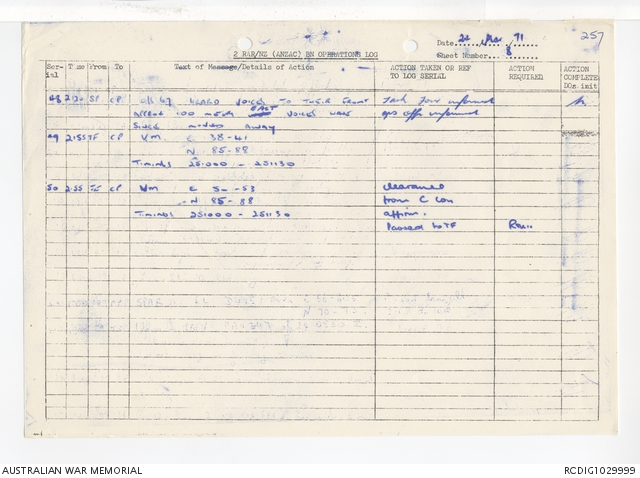 257
2 RAR/NZ (ANZAC) BN OPERATIONS LOG
Date 24 Mar 71
Sheet Number 8
Serial Time From To Text of Message/Details of Action ACTION TAKEN OR REF TO LOG SERIAL ACTION REQUIRED ACTION COMPLETE DOs init
48 2120 CP HEARD VOICES TO THEIR FRONT Task Four informed
APPROX 100 METRES EAST VOICES HAVE ops offr informed
SINCE MOVED AWAY
49 2155 TF CP VM E 38-41
N 85-88
TIMINGS 251000 - 251130
50 2155 TF CP VM E 50-53 clearance
N 85-88 from C Coy
TIMINGS 251000 - 251130 affirm.
Passed to TF
AUSTRALIAN WAR MEMORIAL
RCDIG1029999